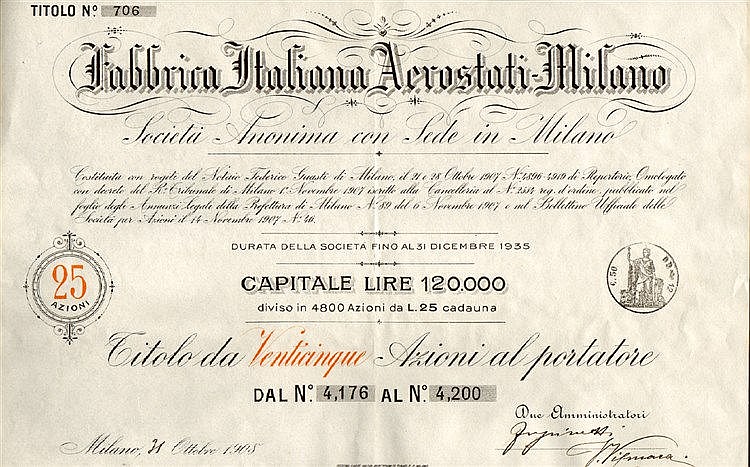 TITOLO Nº 706
Fabbrica Italiana Aerostati-Milano
Società Anonima con Sede in Milano
Costituita con rogiti del Notaio Federico Guasti di Milano, il 21 e 28 Ottobre 1907 Nº 4896-4919 di Repertorio, Omologato
con decreto del Rº Tribunale di Milano 1º Novembre 1907 iscritto alla Cancelleria al Nº 2584 reg. d'ordine, pubblicato nel
foglio degli Annunzi Legali della Prefettura di Milano Nº 89 del 6 Novembre 1907 e nel Bollettino Ufficiale delle
Società per Azioni il 14 Novembre 1907 Nº 46.
DURATA DELLA SOCIETÀ FINO AL 31 DICEMBRE 1935
25
AZIONI
CAPITALE LIRE 120.000
diviso in 4800 Azioni da L. 25 cadauna
Titolo da Venticinque Azioni al portatore
DAL Nº 4,176 AL Nº 4,200
Due Amministratori
Milano, 31 Ottobre 1908